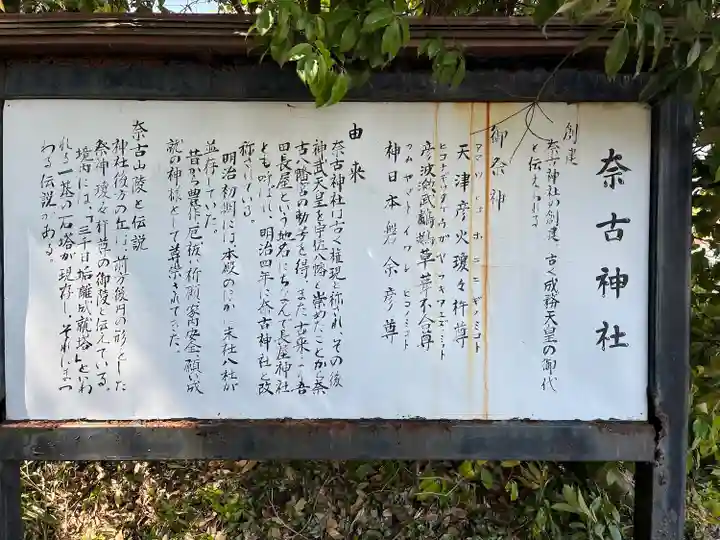 奈古神社
創建
奈古神社の創建、古く成務天皇の御代
と伝えられる
御祭神
アマツヒコホニニギノミコト
天津彦火瓊々杵尊
ヒコナギサタケウガヤフキアエズノミコト
彦波瀲武鸕鷀草葺不合尊
カムヤマトイワレヒコノミコト
神日本磐余彦尊
由来
奈古神社は古く権現と称され、その後
神武天皇を宇佐八幡と崇めたことから奈
古八幡宮の勅号を得、また古来より吾
田長屋という地名にちなんで長屋神社
とも呼ばれ、明治四年に奈古神社と改
称されている。
明治初期には本殿のほか、末社八社が
並存していた。
昔から豊作、厄祓、祈願、家内安全、願い成
就の神様として尊崇されてきた。
奈古山陵と伝説
神社後方の丘は、前方後円の形をした
祭神、瓊々杵尊の御陵と伝えている。
境内には、「三千日垢離成就塔」といわ
れる一基の石塔が現存し、それにまつ
わる伝説がある。